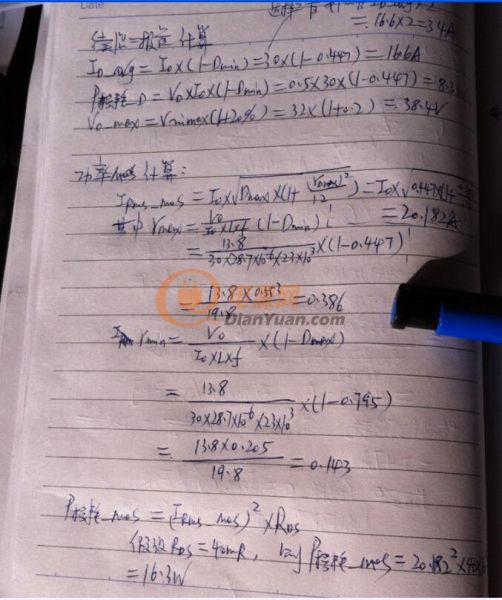 Date
= 16.6×2=34A
续流二极管计算
I_D_avg = Io×(1-Dmin)=30×(1-0.447)=16.6A
P损耗_D=VD×Io×(1-Dmin)=0.5×30×(1-0.447)=8.3W
VD_max=Vinmax(1+20%)=32×(1+0.2)=38.4V
功率mos计算:
Irms_mos=Io×√Dmax×(1+ rmax²/12)=Io×√0.447×(1+
其中 rmax= Vo/Io×L×f (1-Dmin)
=20.182A
= 13.8/30×28.7×10⁻⁶×23×10³ ×(1-0.447)
= 13.8×0.553/19.8 =0.386
电源网
DianYuan.com
rmin= Vo/Io×L×f ×(1-Dmax)
= 13.8/30×28.7×10⁻⁶×23×10³ ×(1-0.795)
= 13.8×0.205/19.8 =0.143
P损耗_mos=(Irms_mos)²×RDS
假设RDS=40mR, 则P损耗_mos=20.182²×40
=16.3W